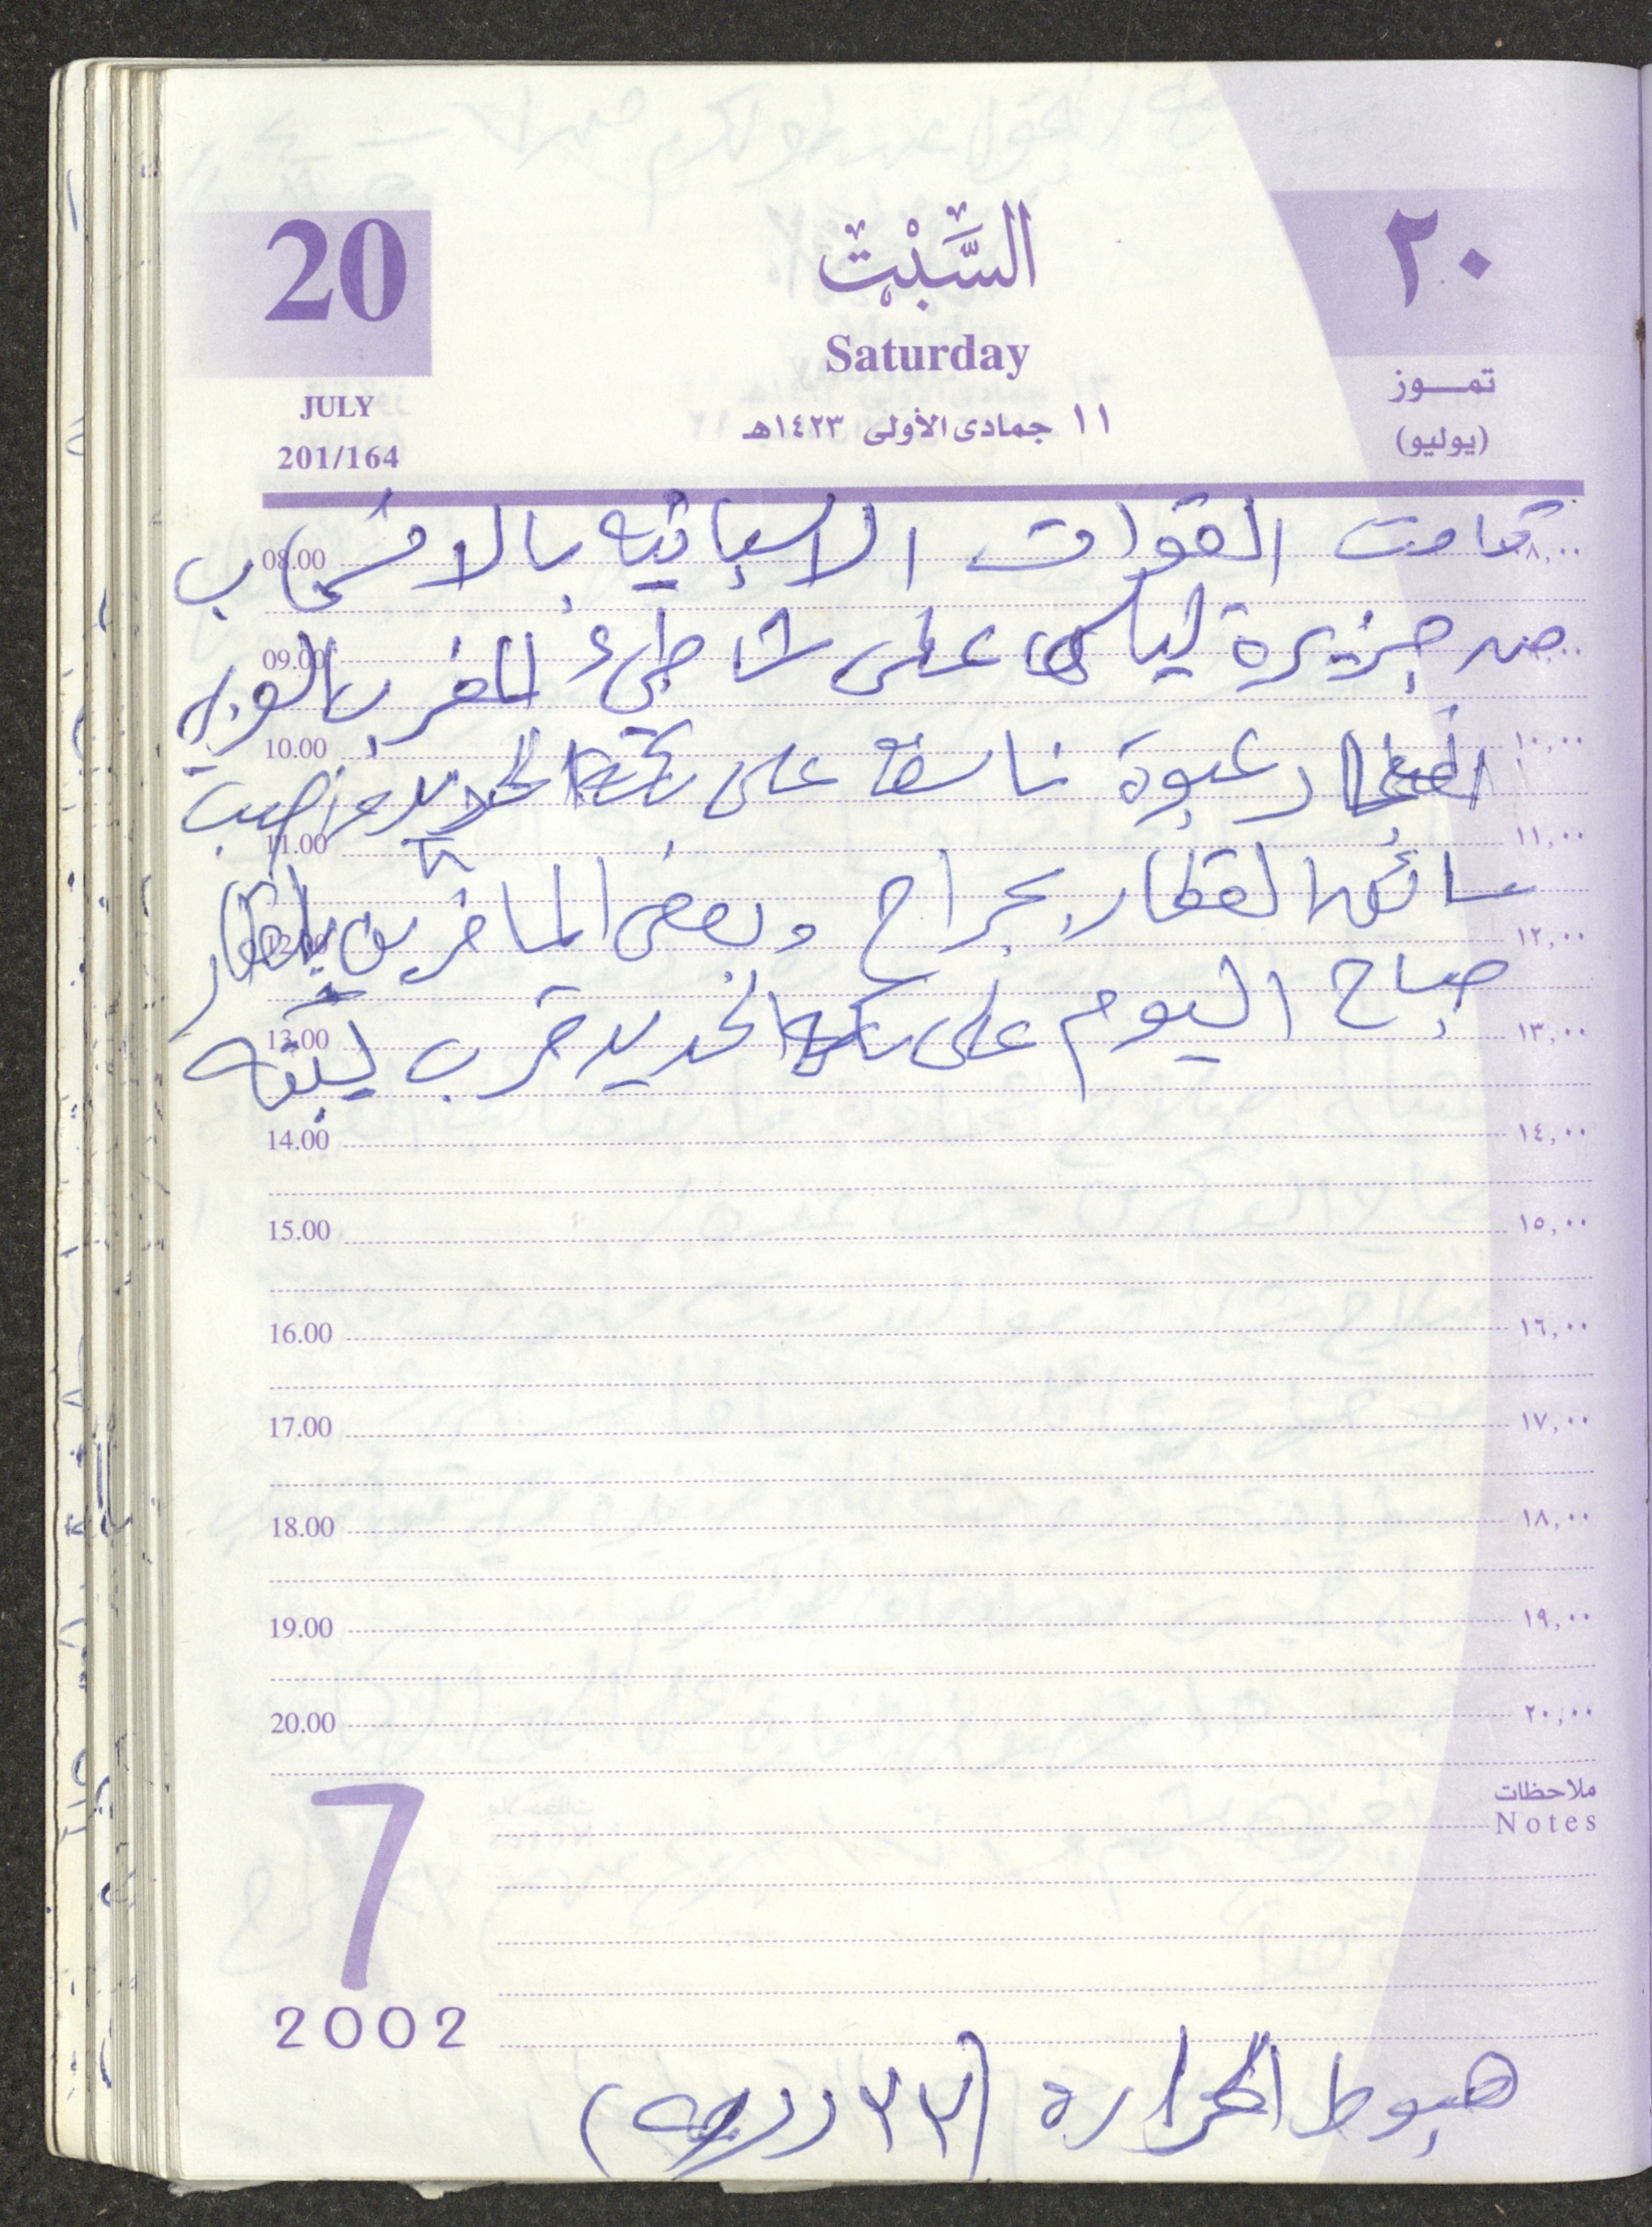 20
السَّبْت
٢٠
Saturday
JULY
تمـــوز
١١ جمادى الأولى ١٤٢٣هـ
(يوليو)
201/164
قامت القوات الاسبانيه بالانسحاب
08.00 ٨,٠٠
من جزيرة ليلى على شاطئ المغرب العربي
09.00
انفجار عبوة ناسفة على سكة الحديد واصيب
10.00 ١٠,٠٠
سائق القطار بجراح وبعض المسافرين بالقطار
11.00 ١١,٠٠
12.00 ١٢,٠٠
صباح اليوم على سكة الحديد قرب يبنه
13.00 ١٣,٠٠
14.00 ١٤,٠٠
15.00 ١٥,٠٠
16.00 ١٦,٠٠
17.00 ١٧,٠٠
18.00 ١٨,٠٠
19.00 ١٩,٠٠
20.00 ٢٠,٠٠
ملاحظات
Notes
7
2002
هبوط الحرارة (٣٣ درجه)